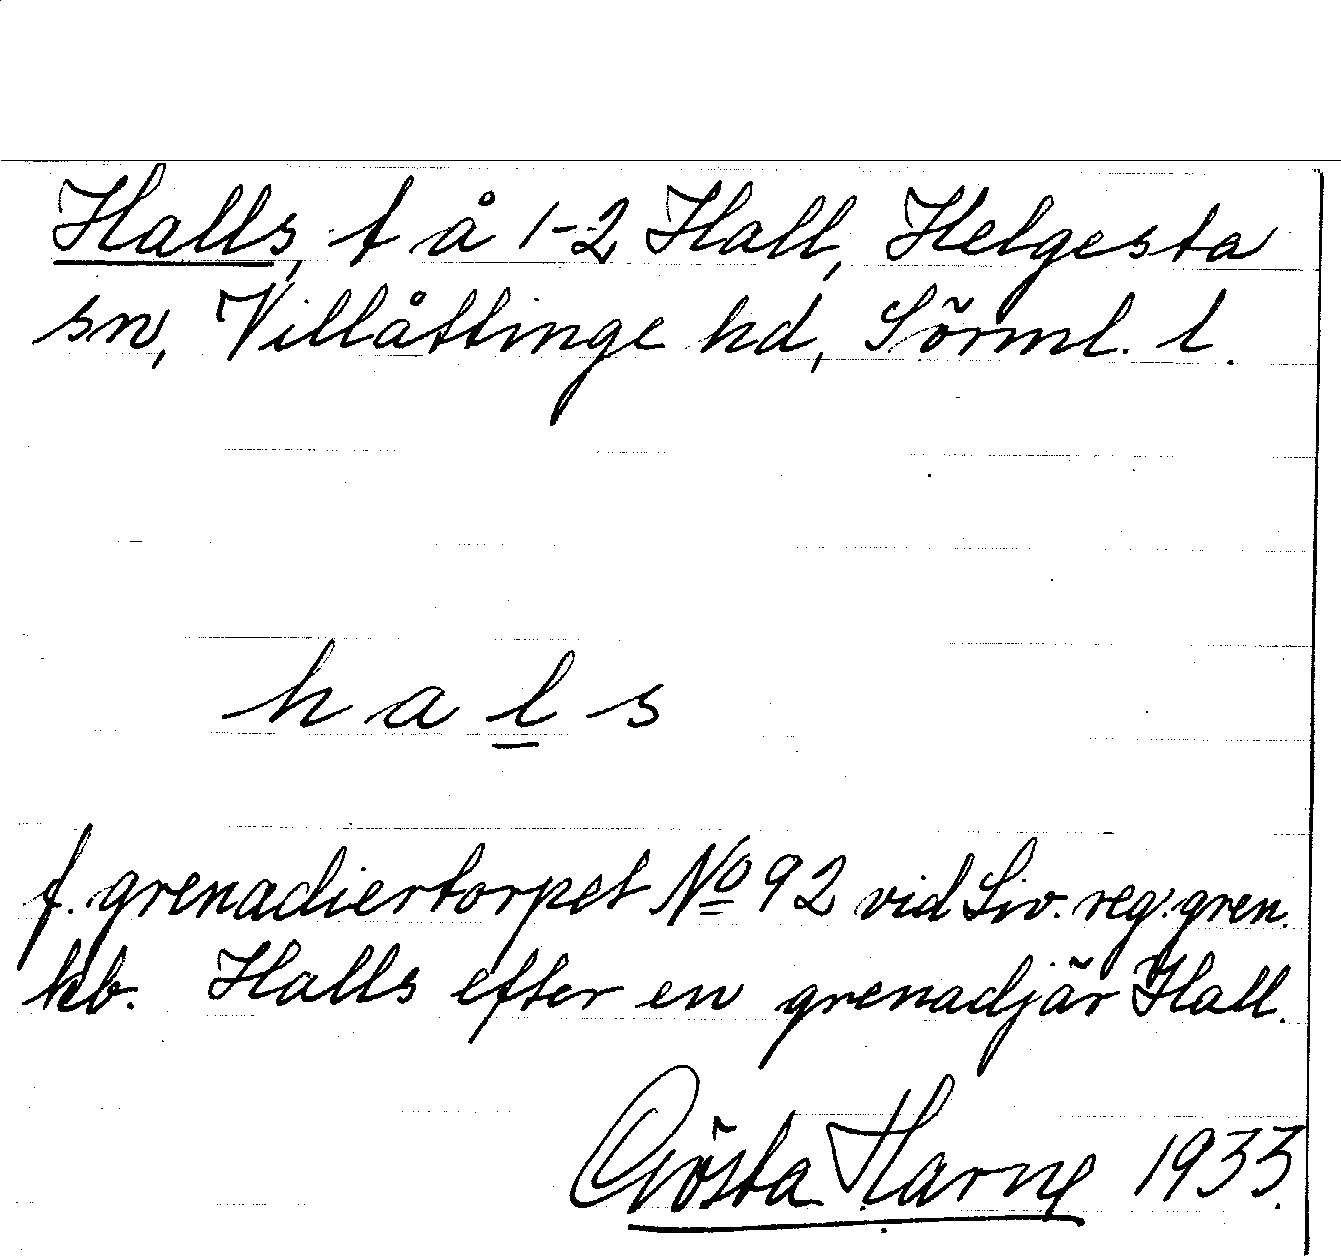 Halls, t å 1-2 Hall, Helgesta
sn, Villåttinge hd, Sörml. l.
h a l s
f. grenadiertorpet No 92 vid Liv. reg. gren.
kb. Halls efter en grenadjär Hall.
Gösta Harne 1933.